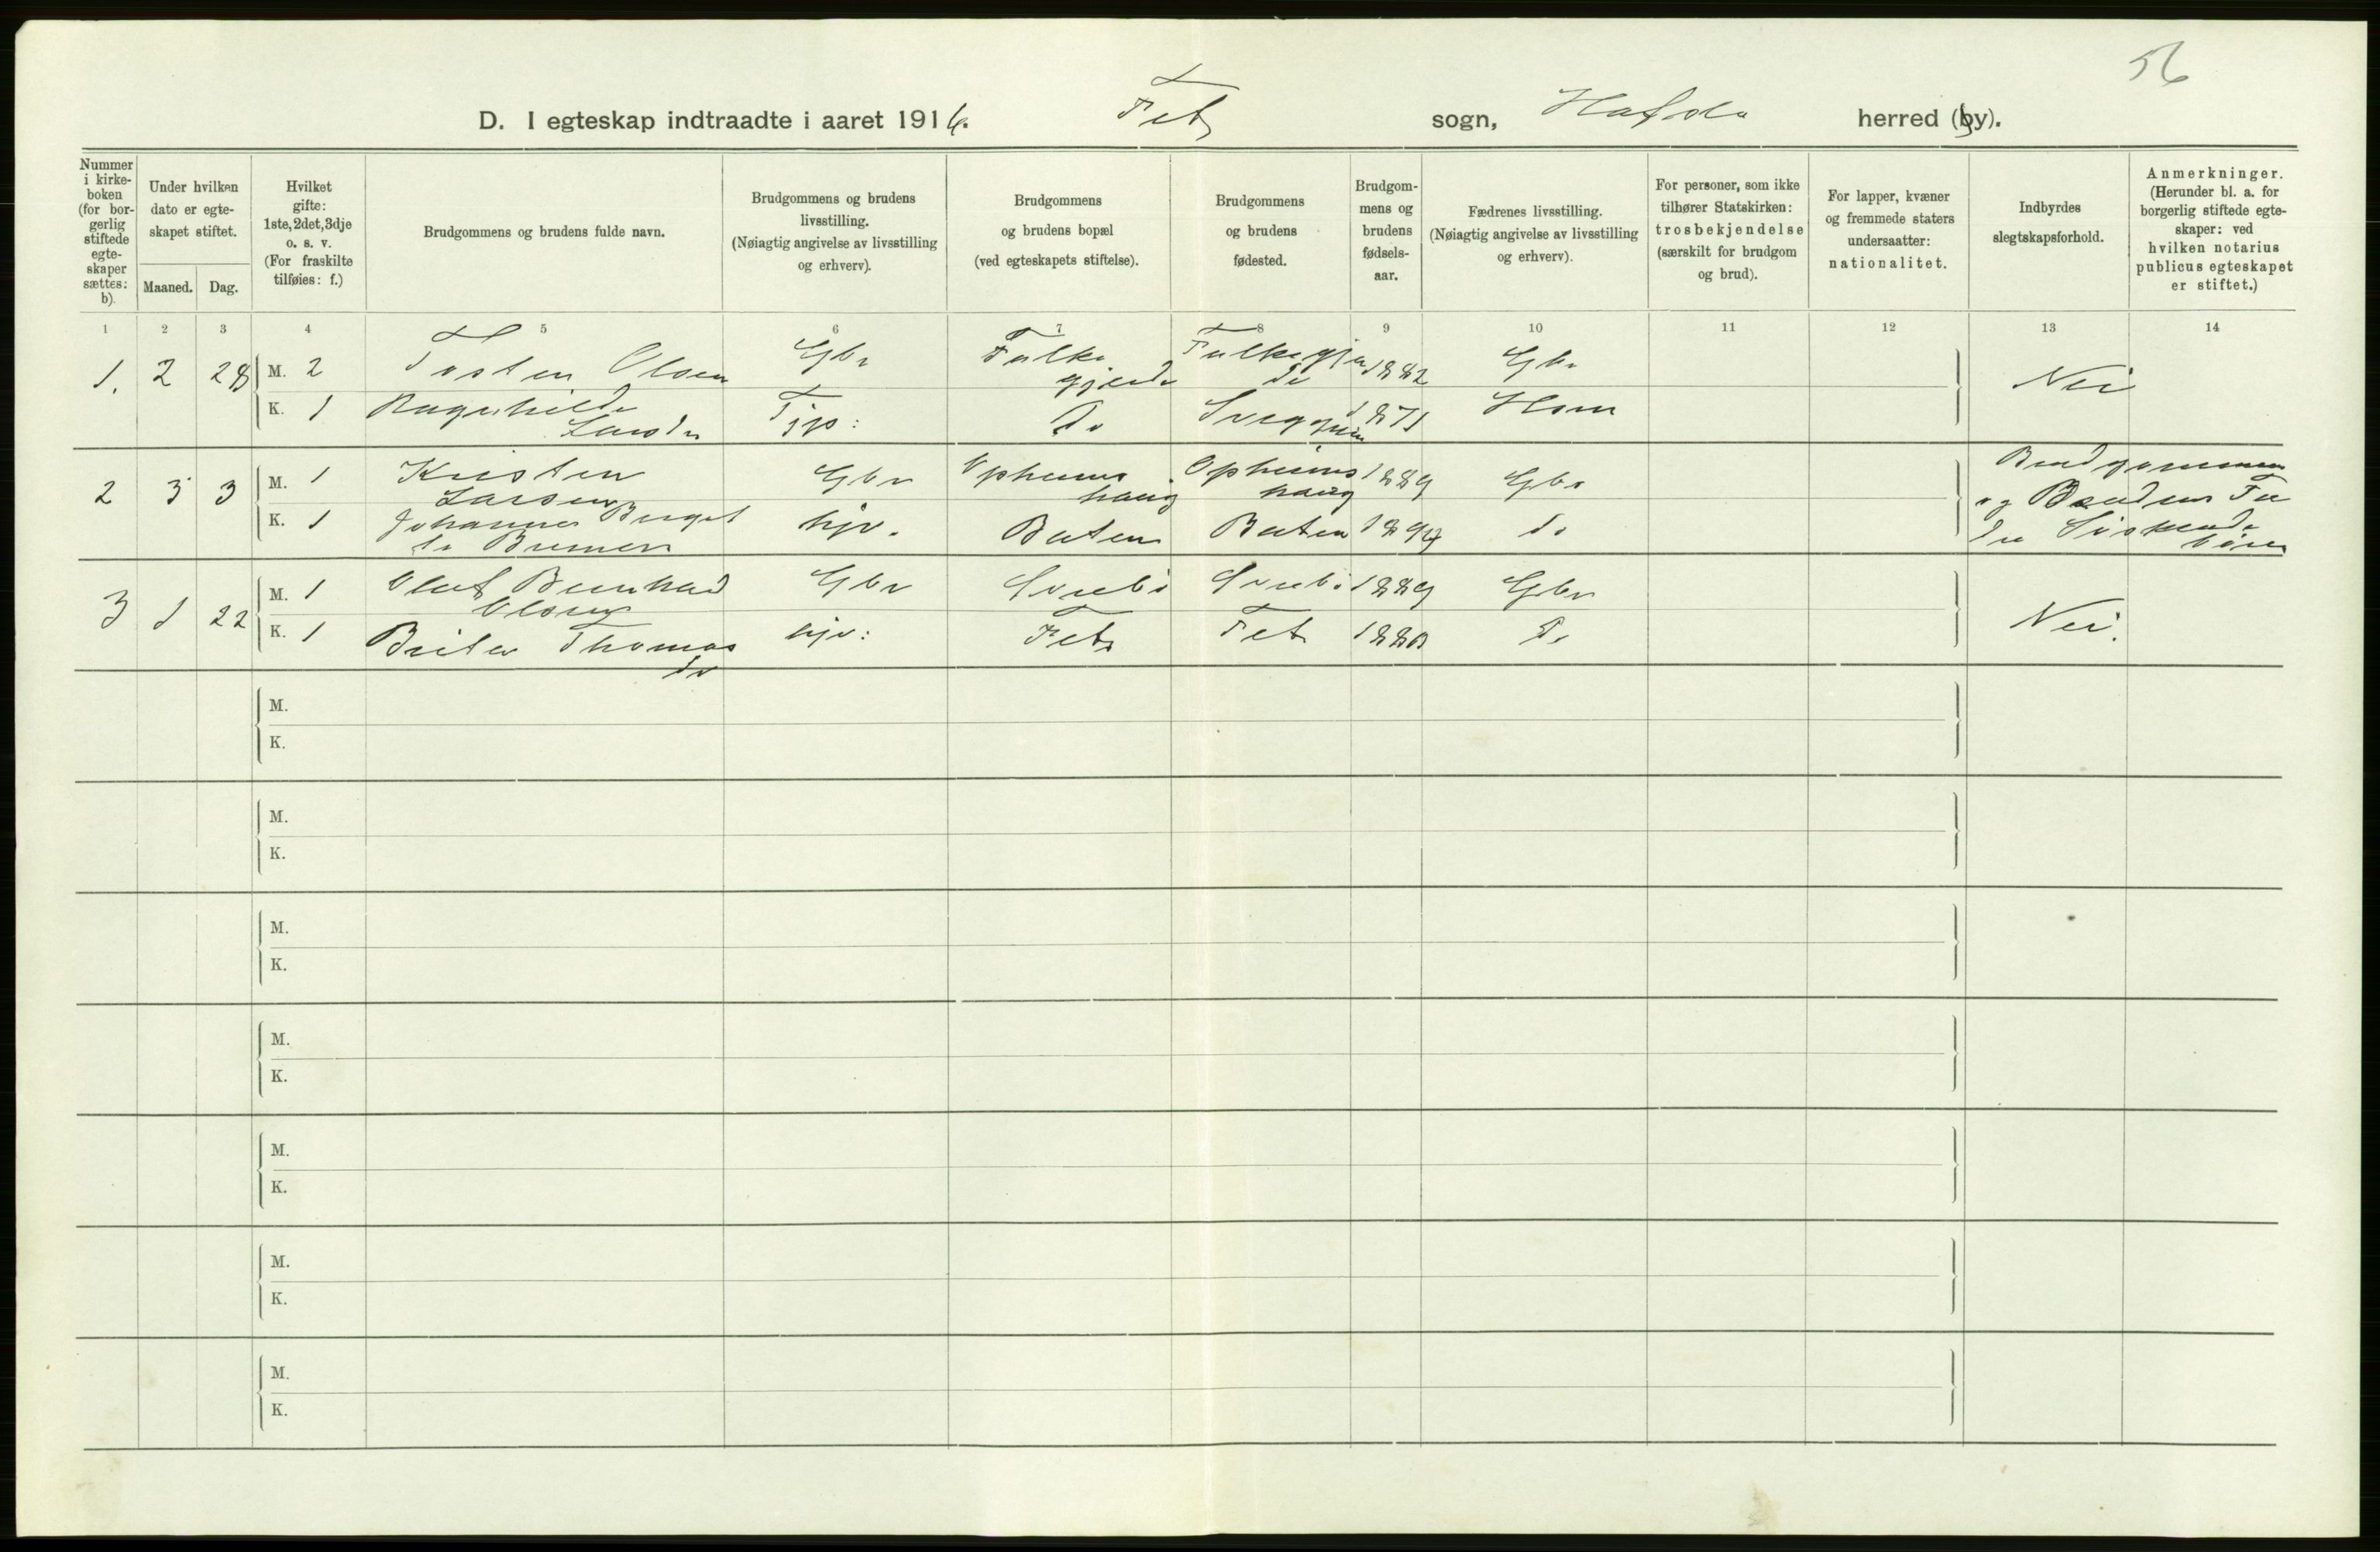 56
D. I egteskap indtraadte i aaret 1916. Fet sogn, Hafslo herred (by).
Nummer i kirkeboken (for borgerlig stiftede egteskaper sættes: b).
Under hvilken dato er egteskapet stiftet.
Maaned. Dag.
Hvilket gifte: 1ste, 2det, 3dje o. s. v. (For fraskilte tilføies: f.)
Brudgommens og brudens fulde navn.
Brudgommens og brudens livsstilling. (Nøiagtig angivelse av livsstilling og erhverv).
Brudgommens og brudens bopæl (ved egteskapets stiftelse).
Brudgommens og brudens fødested.
Brudgommens og brudens fødselsaar.
Fædrenes livsstilling. (Nøiagtig angivelse av livsstilling og erhverv).
For personer, som ikke tilhører Statskirken: trosbekjendelse (særskilt for brudgom og brud).
For lapper, kvæner og fremmede staters undersaatter: nationalitet.
Indbyrdes slegtskapsforhold.
Anmerkninger. (Herunder bl. a. for borgerlig stiftede egteskaper: ved hvilken notarius publicus egteskapet er stiftet.)
1 2 3 4 5 6 7 8 9 10 11 12 13 14
1. 2 28 M. 2 Tosten Olsen Gbr Fulkegjerde Fulkegjerde 1882 Gbr Nei
K. 1 Ragnhilde Larsdr Tjp: Do 1871 Hsm
2 3 3 M. 1 Kristen Larsen Gbr Opheimshaug Opheimshaug 1889 Gbr Brudgommen og Brudens Fædre Søskendebørn
K. 1 Johanna hjv. Baten Baten 1894 Do
3 1 22 M. 1 Olaf Bernhard Olsen Gbr 1889 Gbr Nei.
K. 1 Brita Thomasdr hjv: Fet Fet 1880 Do
M.
K.
M.
K.
M.
K.
M.
K.
M.
K.
M.
K.
M.
K.